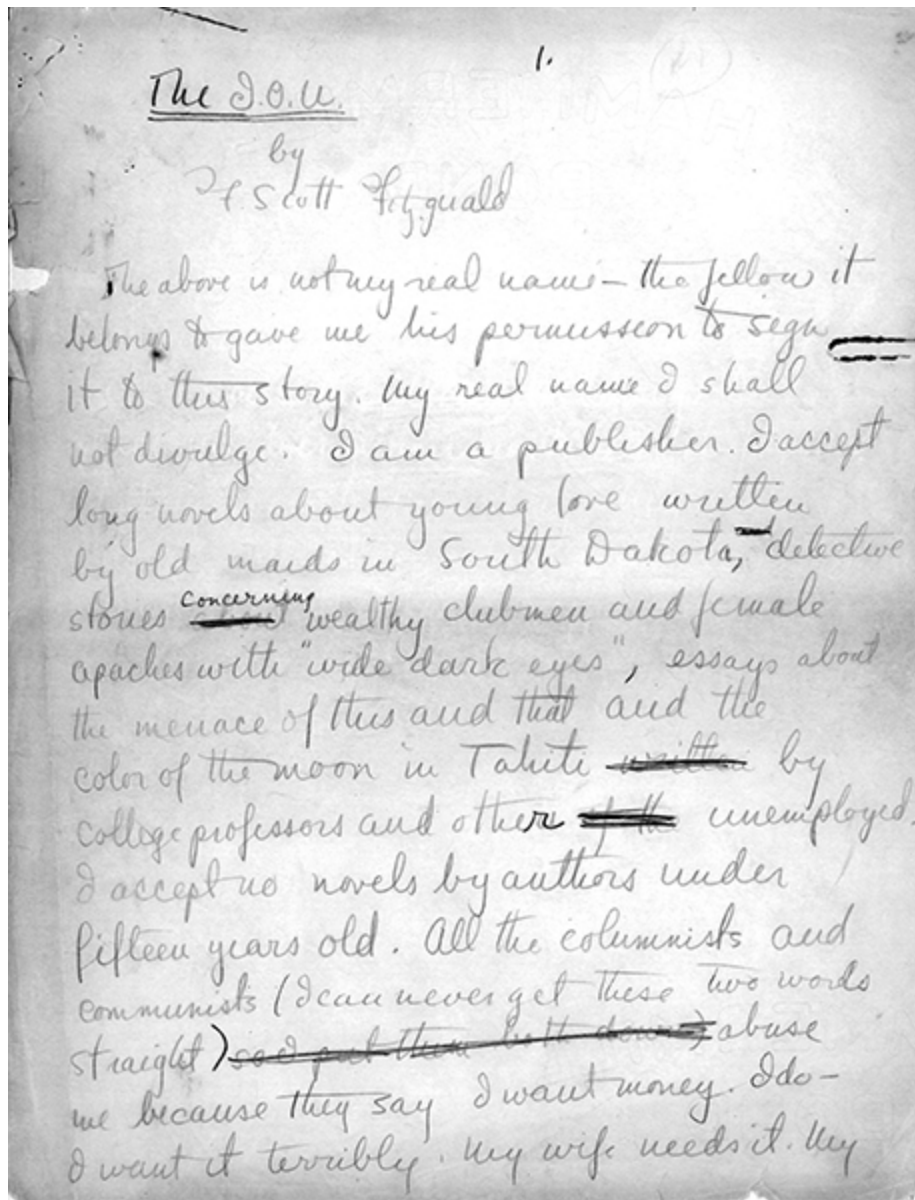 1.
The I.O.U.
by
F Scott Fitzgerald
The above is not my real name – the fellow it
belongs to gave me his permission to sign
it to this story. My real name I shall
not divulge. I am a publisher. I accept
long novels about young love written
by old maids in South Dakota, detective
stories concerning wealthy clubmen and female
apaches with "wide dark eyes", essays about
the menace of this and that and the
color of the moon in Tahiti written by
college professors and other of the unemployed.
I accept no novels by authors under
fifteen years old. All the columnists and
communists (I can never get these two words
straight) so I put them both down) abuse
me because they say I want money. I do –
I want it terribly. My wife needs it. My